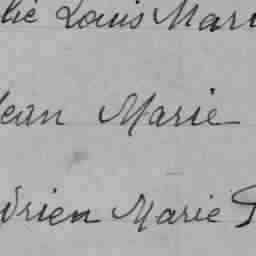 lie Louis Mari
Jean Marie
drien Marie